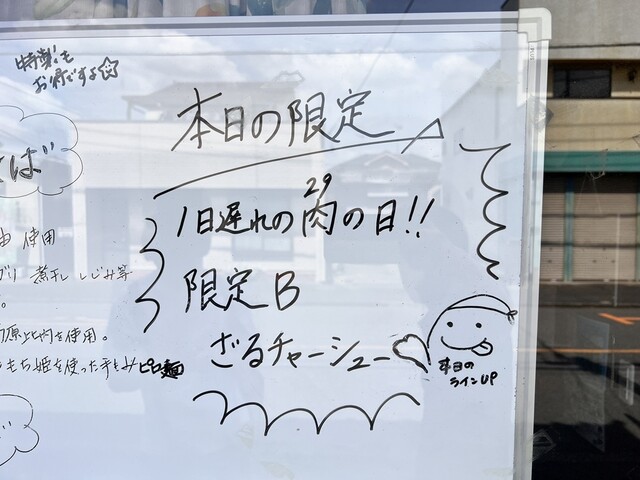 特製も
お得ですよ☆
本日の限定
そば
29
1日遅れの肉の日!!
限定B
ざるチャーシュー♡
本日の
ラインUP
油 使用
煮干 しじみ等
。
比内を使用。
もち姫を使った手もみピロ麺